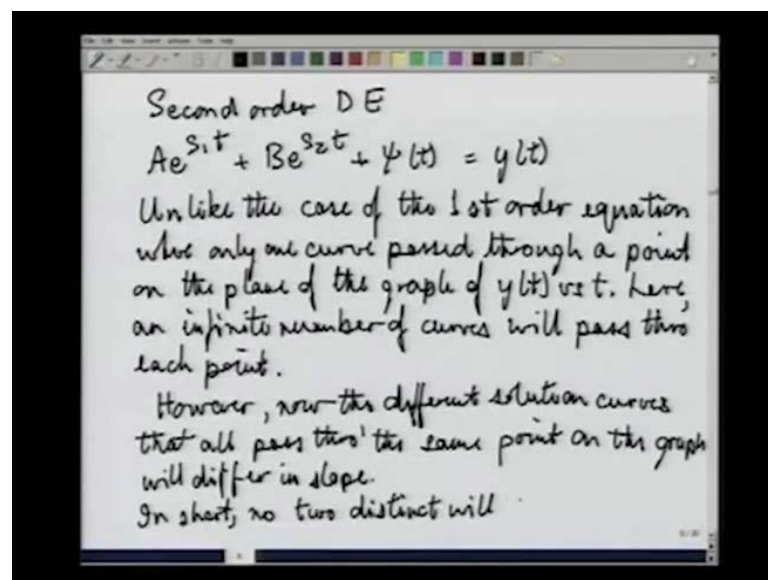 Second order DE
Ae^{s₁t} + Be^{s₂t} + ψ(t) = y(t)
Unlike the case of the 1st order equation
where only one curve passed through a point
on the plane of the graph of y(t) vs t. here,
an infinite number of curves will pass thro
each point.
However, now the different solution curves
that all pass thro' the same point on the graph
will differ in slope.
In short, no two distinct will